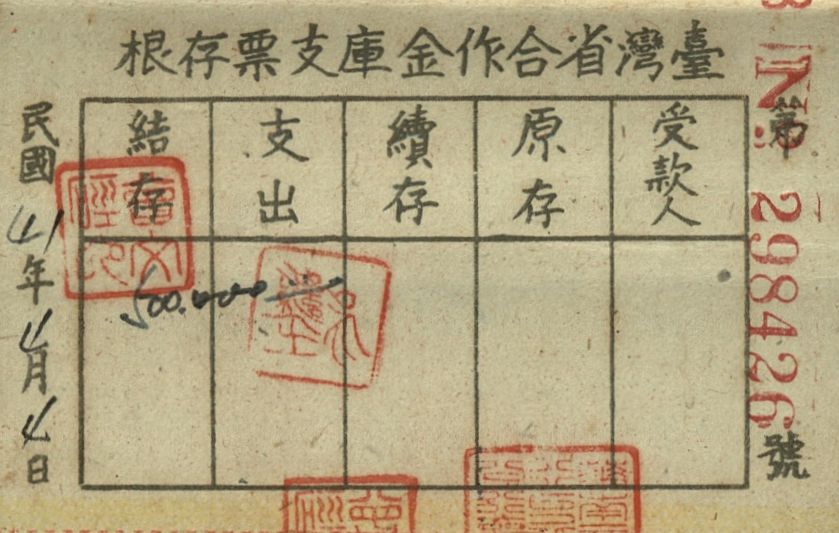 臺灣省合作金庫支票存根
第 No. 298426 號
受款人
原存
續存
支出
結存
500.000
民國41年4月4日